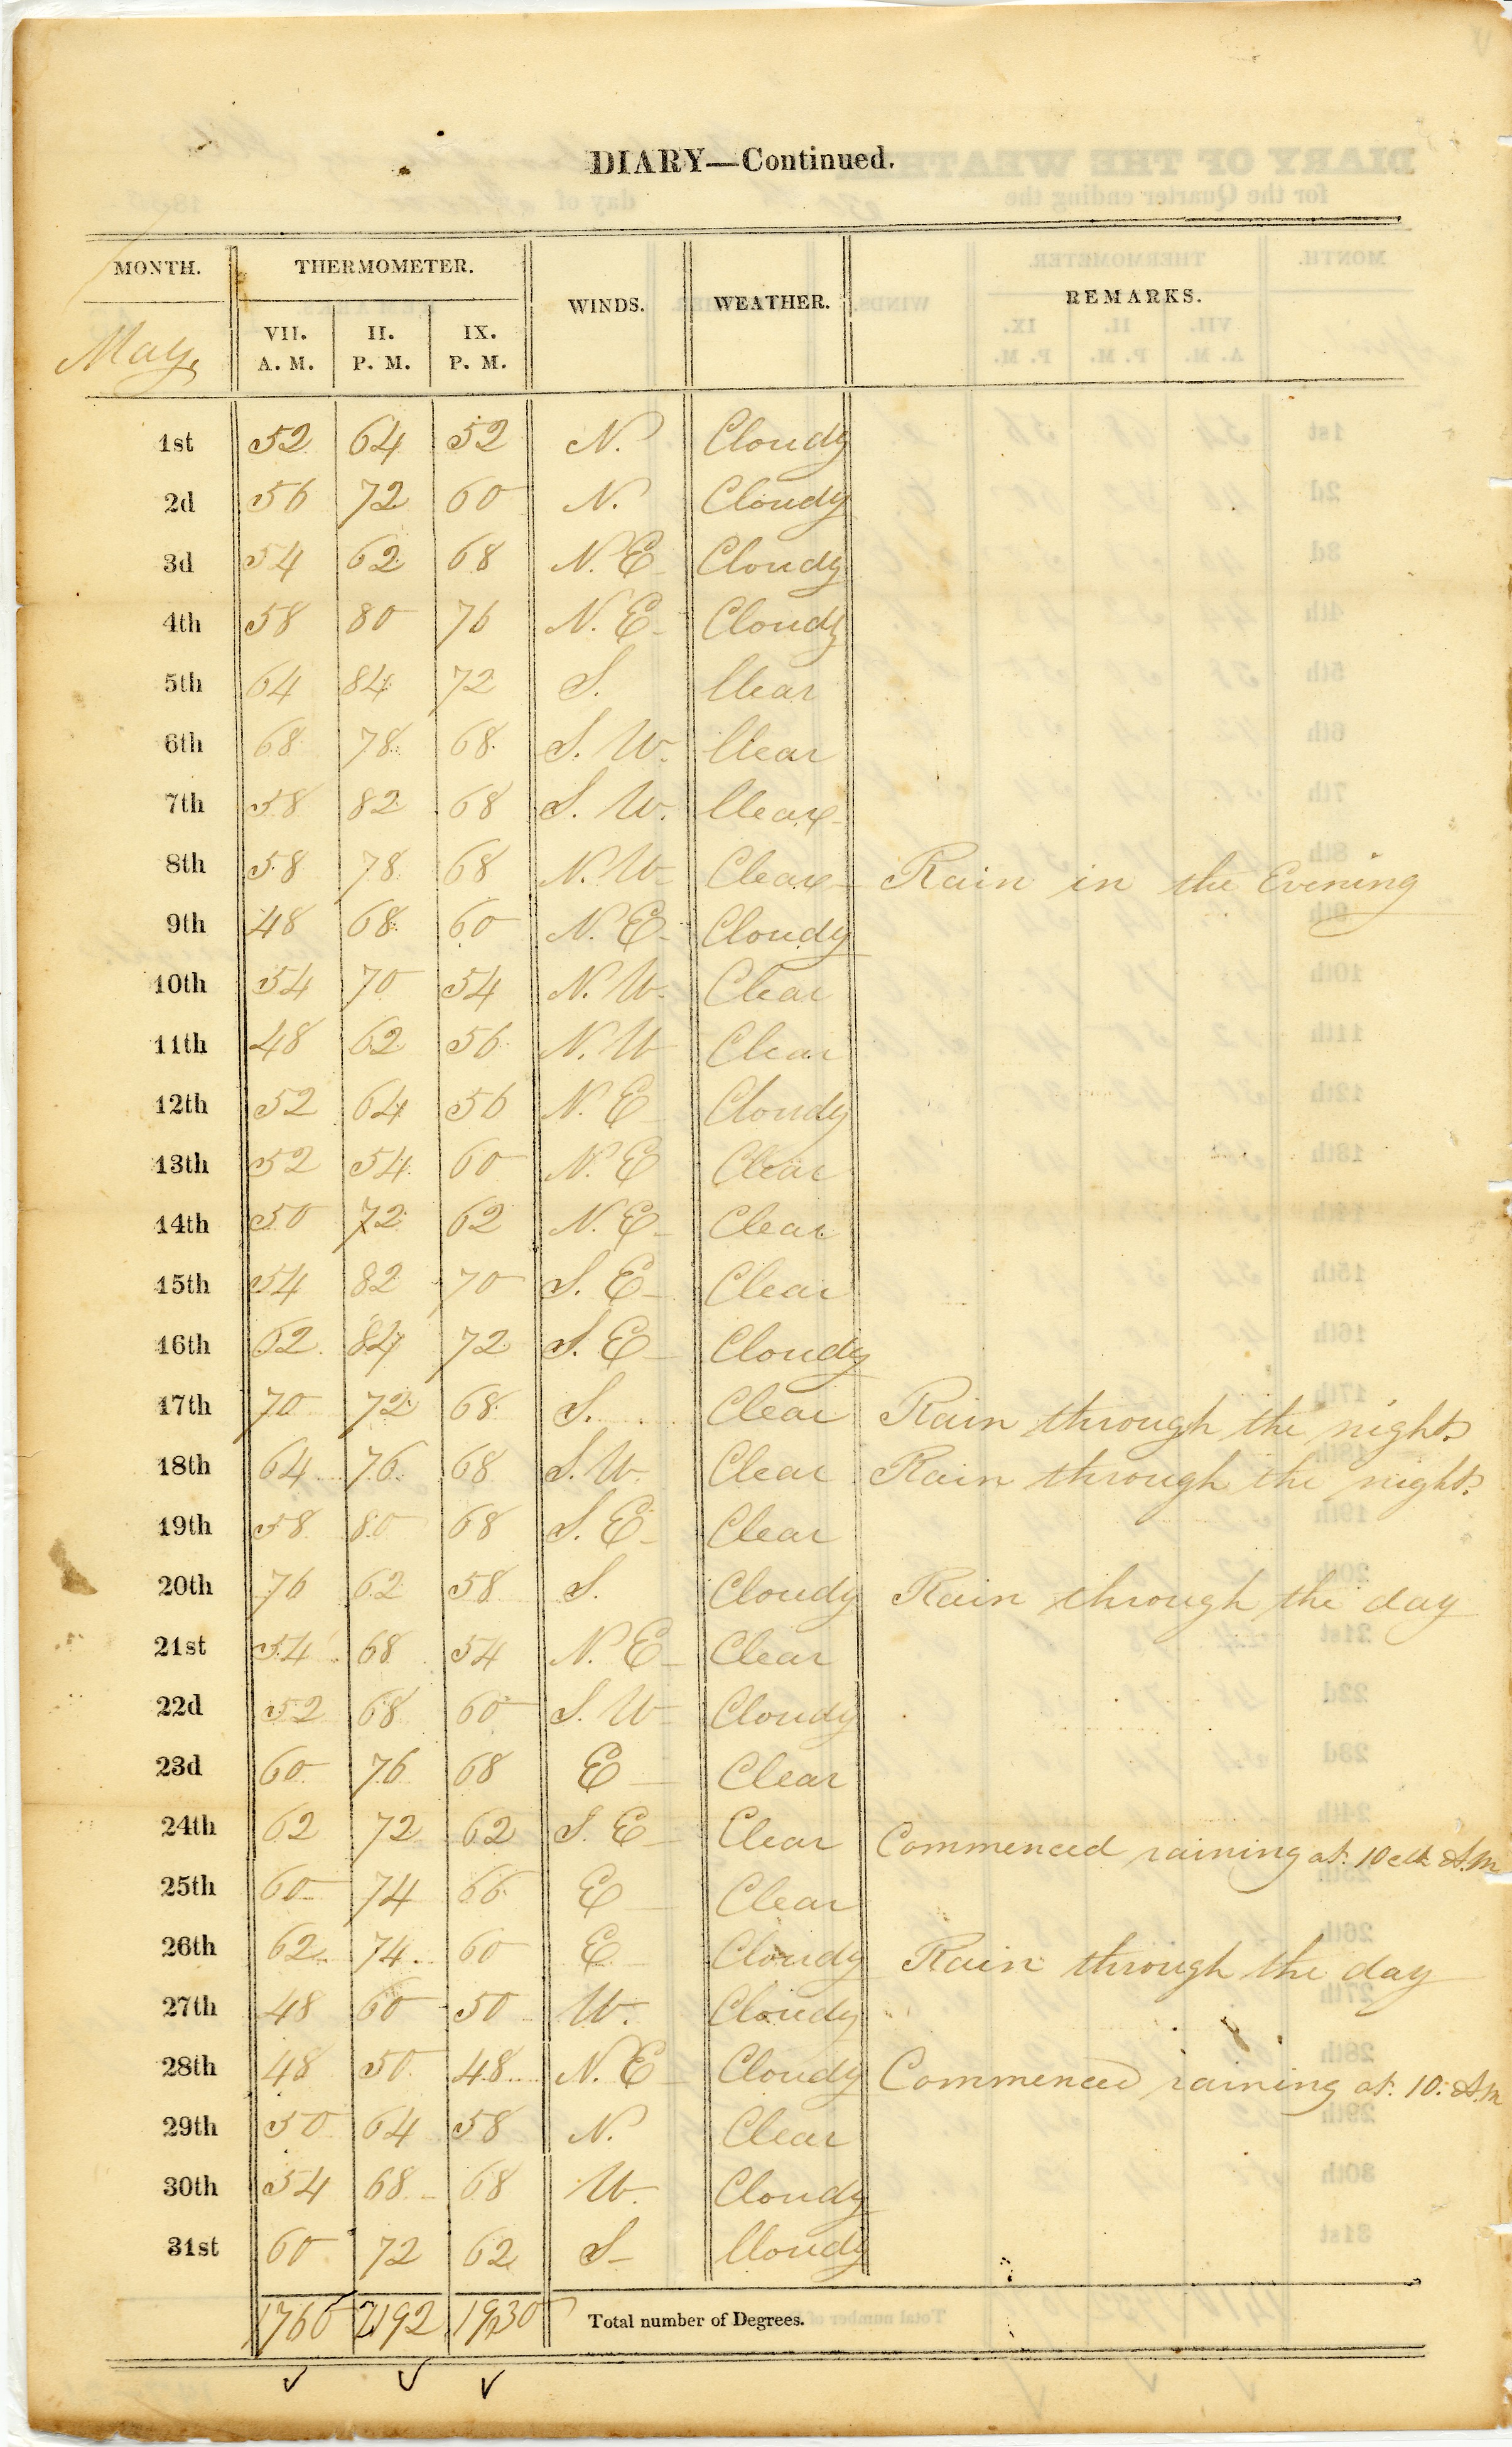 DIARY—Continued.
MONTH. THERMOMETER. WINDS. WEATHER. REMARKS.
May, VII. A. M. II. P. M. IX. P. M.
1st 52 64 52 N. Cloudy
2d 56 72 60 N. Cloudy
3d 54 62 68 N. E Cloudy
4th 58 80 76 N. E Cloudy
5th 64 84 72 S. Clear
6th 68 78 68 S. W. Clear
7th 58 82 68 S. W. Clear
8th 58 78 68 N. W Clear Rain in the Evening
9th 48 68 60 N. E Cloudy
10th 54 70 54 N. W. Clear
11th 48 62 56 N. W Clear
12th 52 64 56 N. E Cloudy
13th 52 54 60 N. E Clear
14th 50 72 62 N. E Clear
15th 54 82 70 S. E Clear
16th 62 84 72 S. E Cloudy
17th 70 72 68 S. Clear Rain through the night.
18th 64 76 68 S. W. Clear Rain through the night.
19th 58 80 68 S. E Clear
20th 76 62 58 S. Cloudy Rain through the day
21st 54 68 54 N. E Clear
22d 52 68 60 S. W Cloudy
23d 60 76 68 E Clear
24th 62 72 62 S. E Clear Commenced raining at 10 clk A.M
25th 60 74 66 E Clear
26th 62 74 60 E Cloudy Rain through the day
27th 48 60 50 W. Cloudy
28th 48 50 48 N. E Cloudy Commenced raining at 10. A.M
29th 50 64 58 N. Clear
30th 54 68 68 W. Cloudy
31st 60 72 62 S Cloudy
1760 2192 1930 Total number of Degrees.